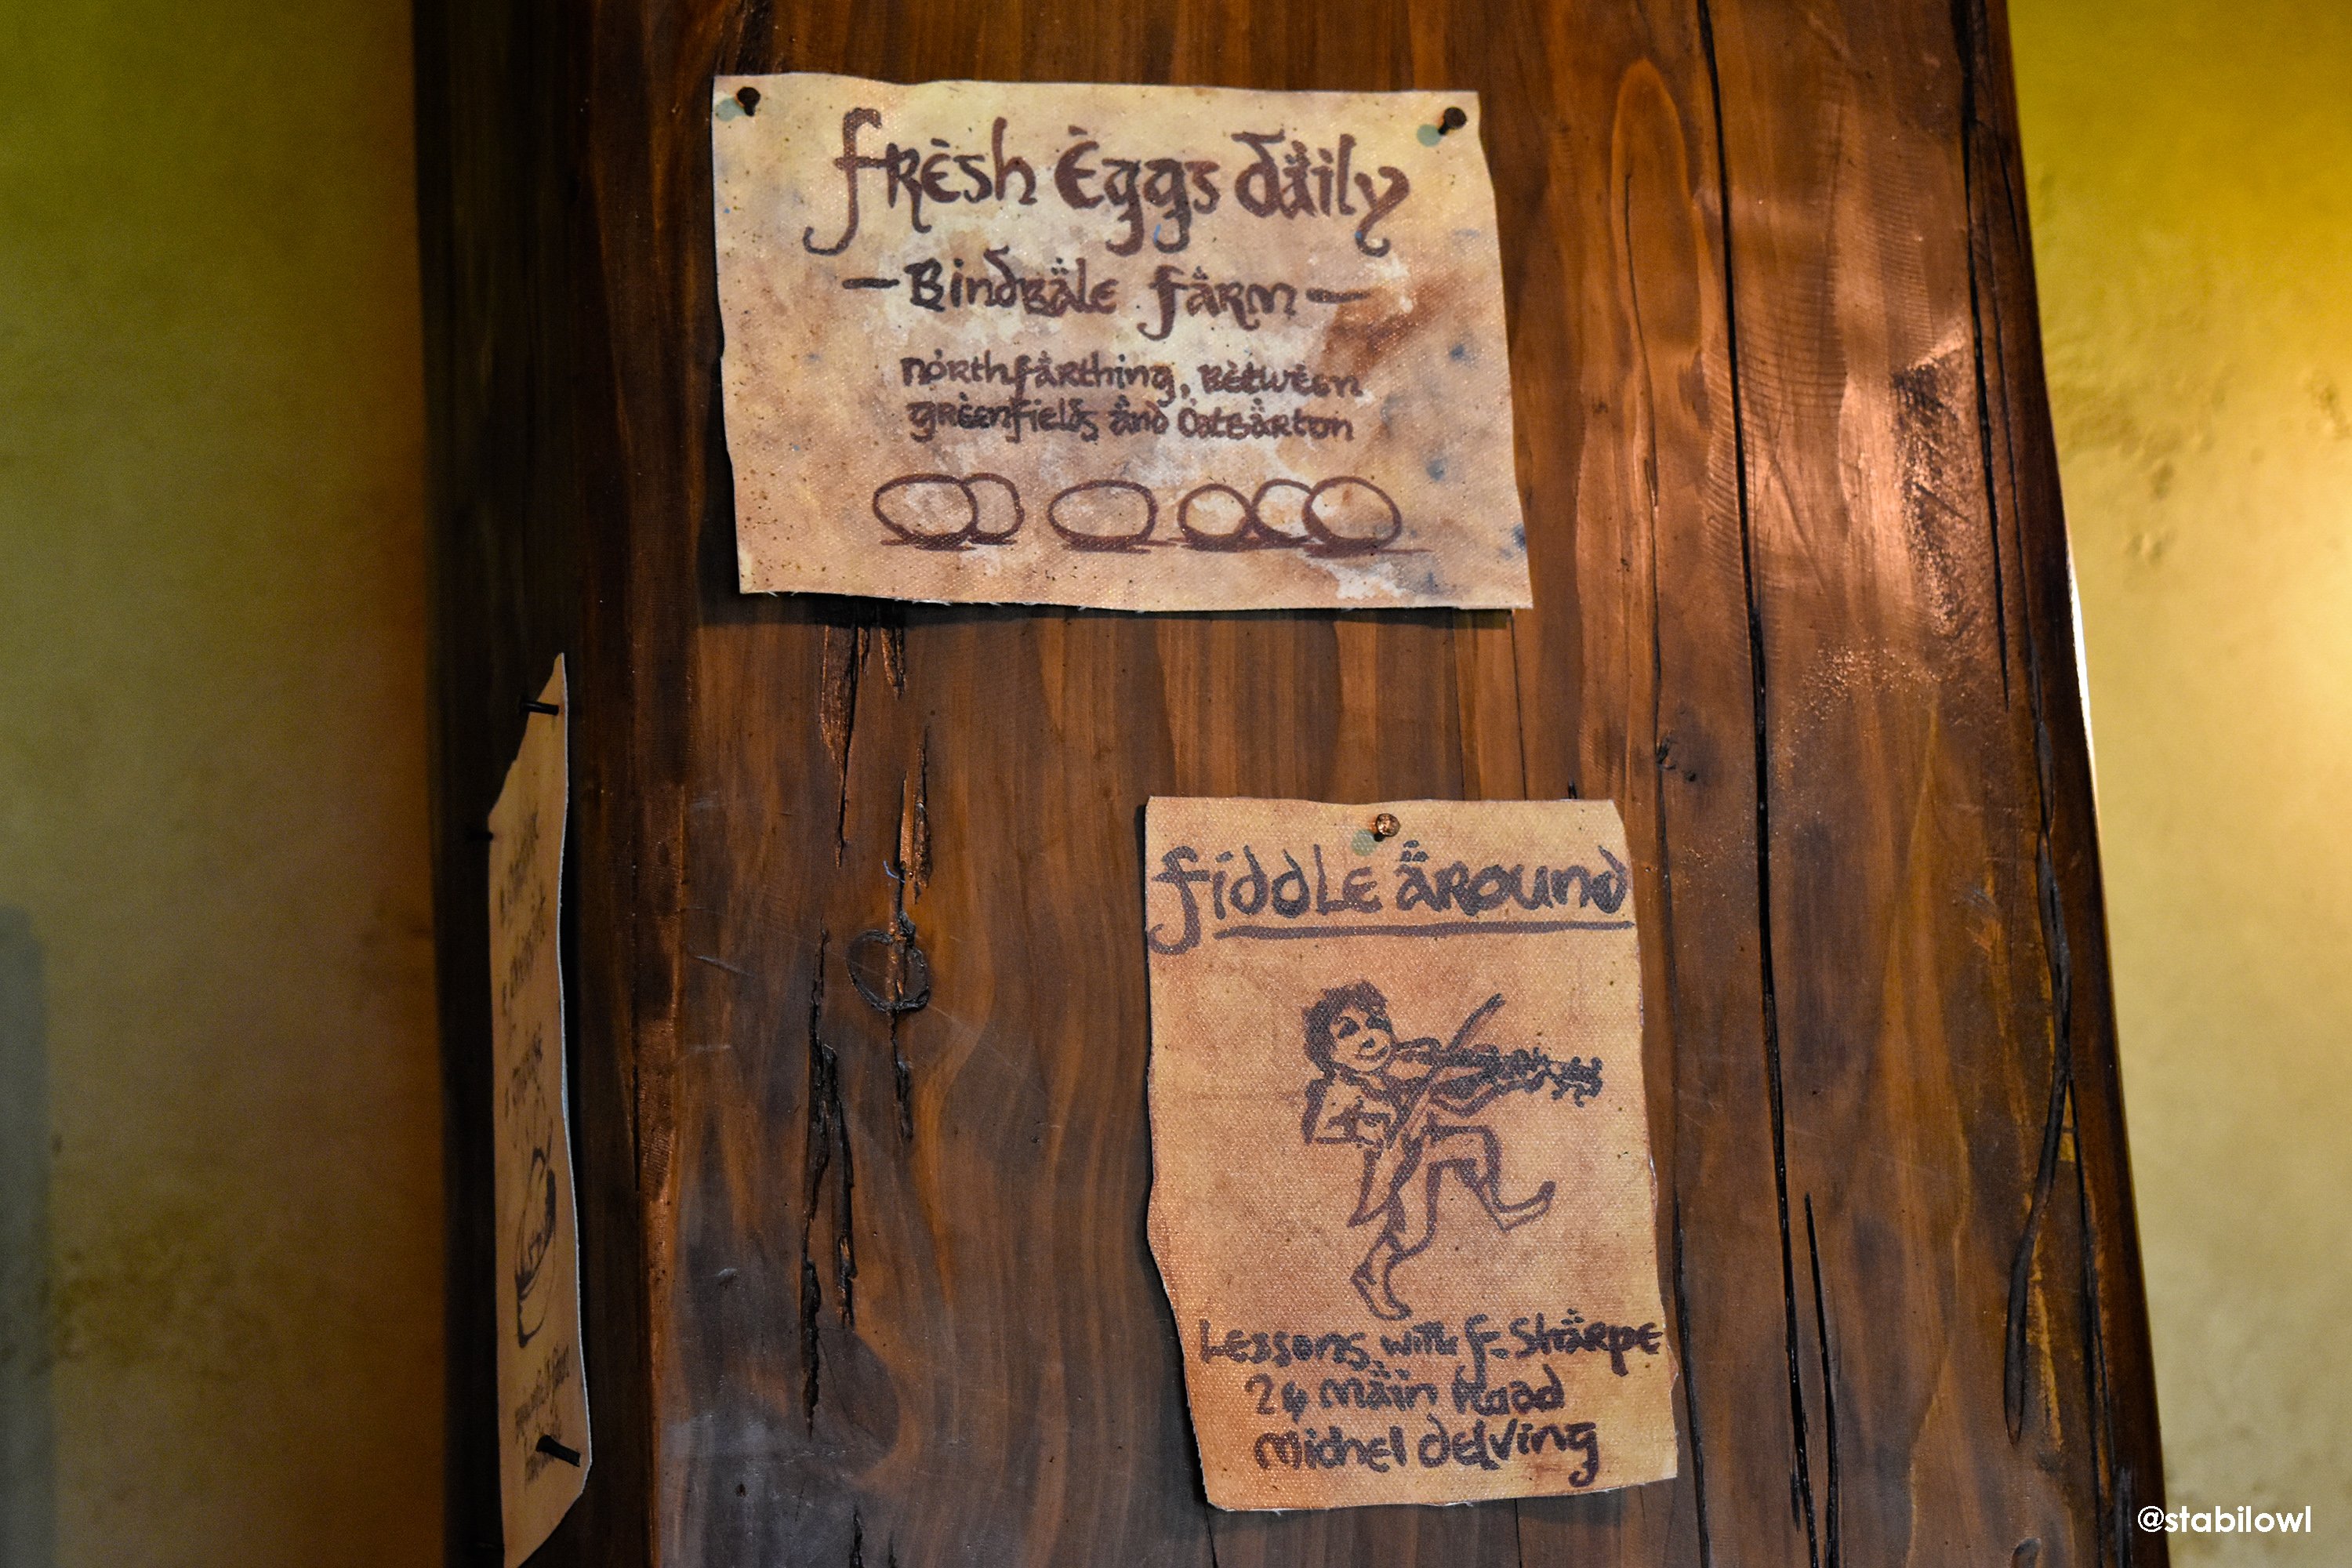 fresh Eggs daily
- Bindbale farm -
northfarthing, Between
greenfields and Oatbarton
fiddle around
Lessons with f. Sharpe
24 Main Road
Michel delving
@stabilowl